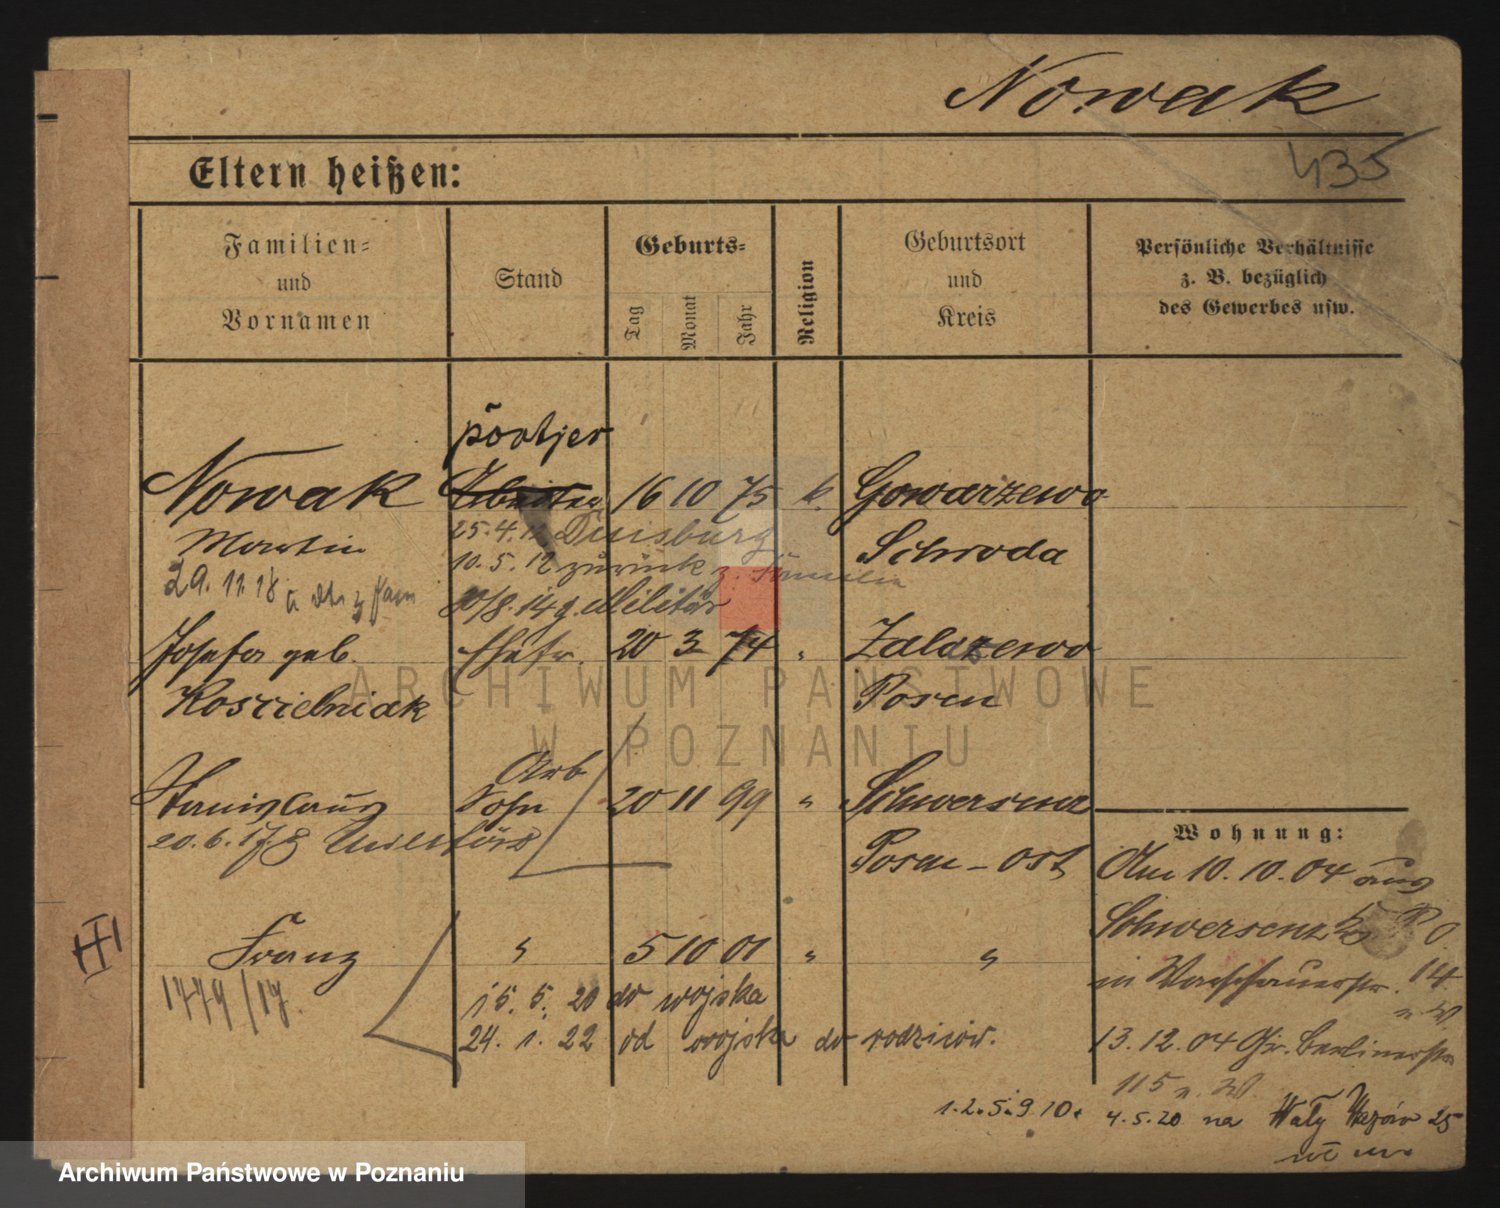 Nowak
435
Eltern heißen:
Familien-
und
Vornamen
Stand
Geburts-
Tag
Monat
Jahr
Religion
Geburtsort
und
Kreis
Persönliche Verhältnisse
z. B. bezüglich
des Gewerbes usw.
portjer
Nowak Arbeiter 16 10 75 k. Gowarzewo
Martin 25.4.12 Duisburg Schroda
10.5.12 zurück z. Familie
29.11.18
30/8.14 z. Militär
Josefa geb. Ehefr. 20 3 74 " Zalasewo
Koscielniak Posen
Arb
Stanislaus Sohn 20 11 99 " Schwersenz
20.6.17 z Militär Posen-Ost
Wohnung:
Am 10.10.04 aus
Schwersenz Kr P O.
in Warschauerstr. 14.
Franz " 5 10 01 " "
1779/17.
15. 5. 20 do wojska
24. 1. 22 od wojska do rodziców.
13.12.04 Gr. Berlinerstr
115
1.2.5.9.10.
4.5.20 na Wały Wazów 25
III
ARCHIWUM PAŃSTWOWE
W POZNANIU
Archiwum Państwowe w Poznaniu